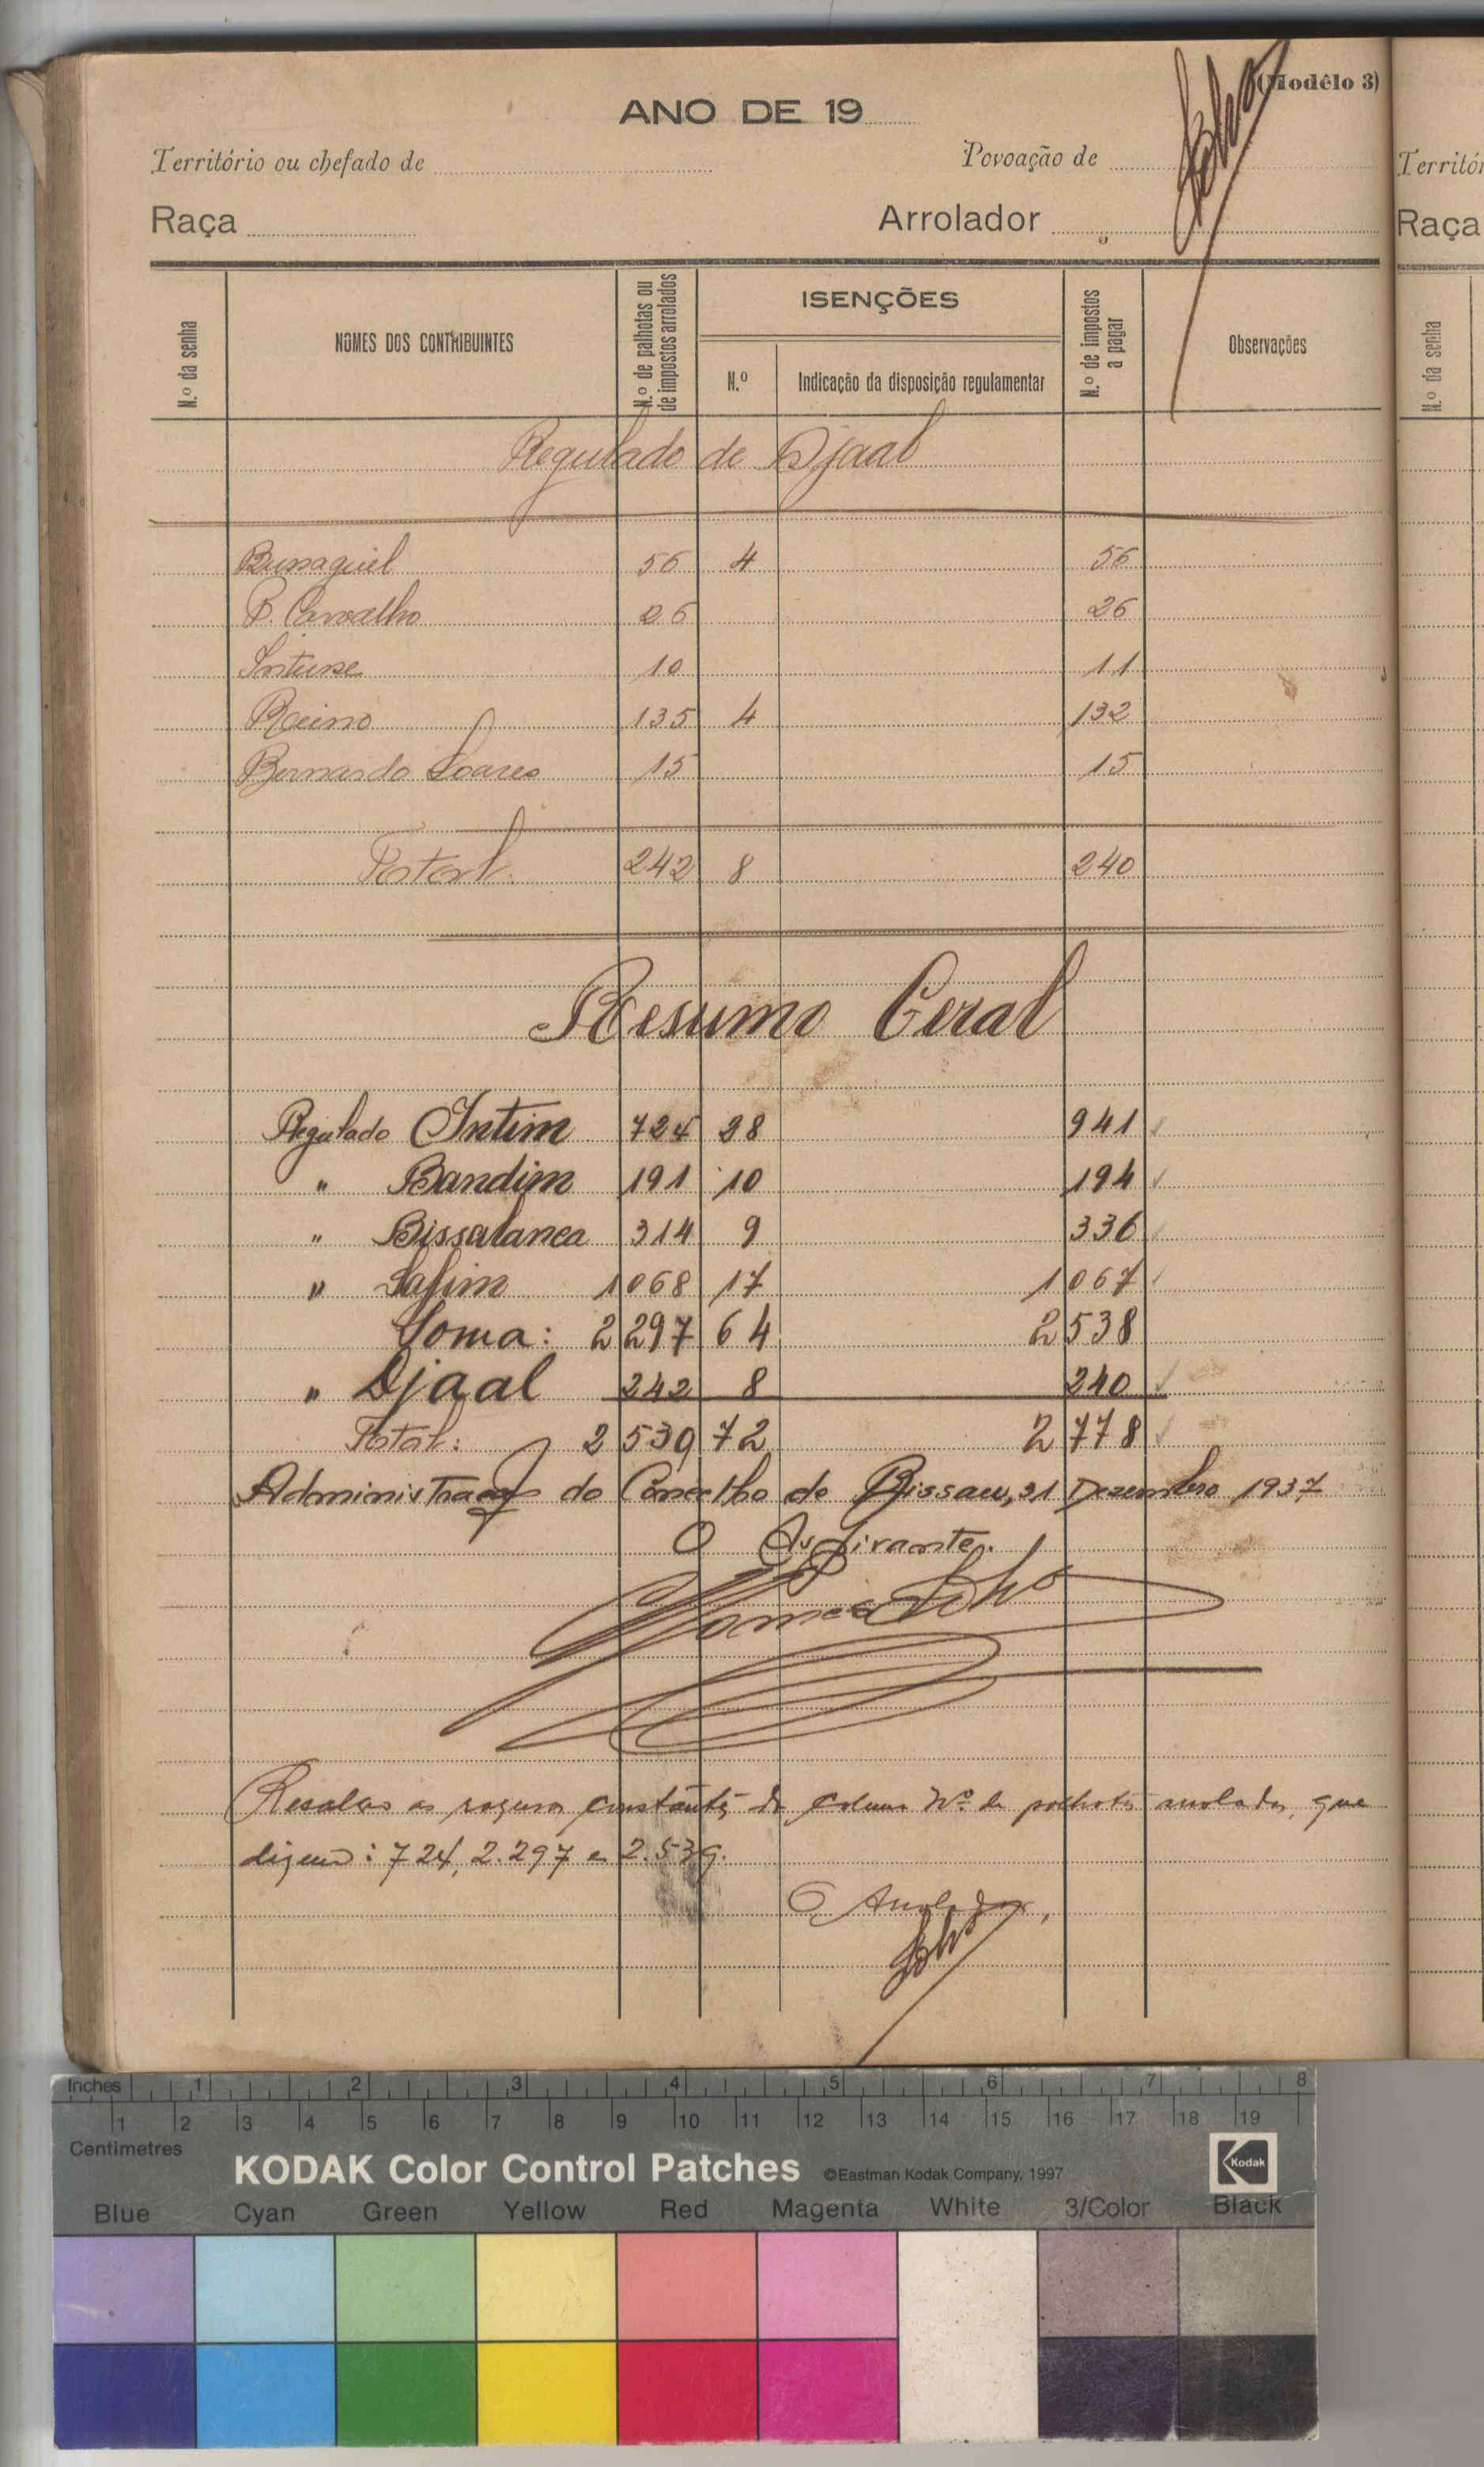 (Modêlo 3)
ANO DE 19
Território ou chefado de Povoação de
Raça Arrolador
N.º da senha NOMES DOS CONTRIBUINTES N.º de palhotas ou de impostos arrolados ISENÇÕES N.º Indicação da disposição regulamentar N.º de impostos a pagar Observações
Regulado de Djaal
Bussaquel 56 4 56
P. Carvalho 26 26
Intusse 10 11
Reino 135 4 132
Bernardo Soares 15 15
Total. 242 8 240
Resumo Geral
Regulado Intim 724 28 941
" Bandim 191 10 194
" Bissalanca 314 9 336
" Safim 1068 17 1067
Soma: 2297 64 2538
" Djaal 242 8 240
Total: 2539 72 2778
Administração do Concelho de Bissau, 31 Dezembro 1937
O Aspirante.
Gomes
as constantes da coluna Nº de palhotas que
dizem: 724, 2.297 e 2.539.
O Arrolador,
Territó
Raça
N.º da senha
Inches 1 2 3 4 5 6 7 8
1 2 3 4 5 6 7 8 9 10 11 12 13 14 15 16 17 18 19
Centimetres
KODAK Color Control Patches ©Eastman Kodak Company, 1997 Kodak
Blue Cyan Green Yellow Red Magenta White 3/Color Black